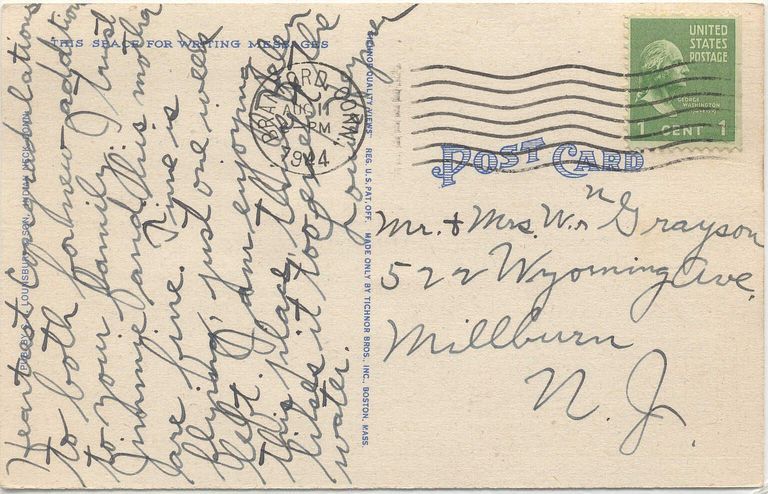 THIS SPACE FOR WRITING MESSAGES
Heartiest Congratulations
to both for new addition
to your family. I trust
Jimmie and his mother
are fine. Time is
flying, just one week
left. I am enjoying
this place, the
likes it too
water.
Louayne
PUB. BY LOUNSBURY & SON, INDIAN NECK, CONN.
TICHNOR QUALITY VIEWS REG. U.S. PAT. OFF. MADE ONLY BY TICHNOR BROS., INC., BOSTON, MASS.
BRANFORD, CONN.
AUG 11
PM
1944
UNITED
STATES
POSTAGE
GEORGE
WASHINGTON
1 CENT 1
POST CARD
Mr. & Mrs. Wm Grayson
522 Wyoming Ave.
Millburn
N. J.